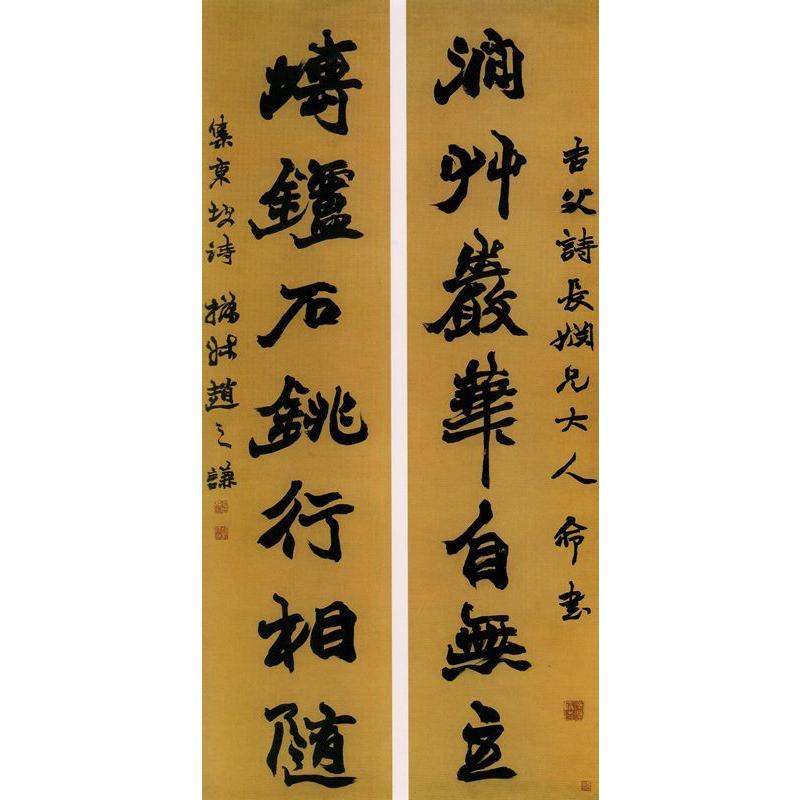 父詩長婣兄大人命書
澗艸巖華自無主
塼鑪石銚行相隨
集東坡詩 撝叔趙之謙